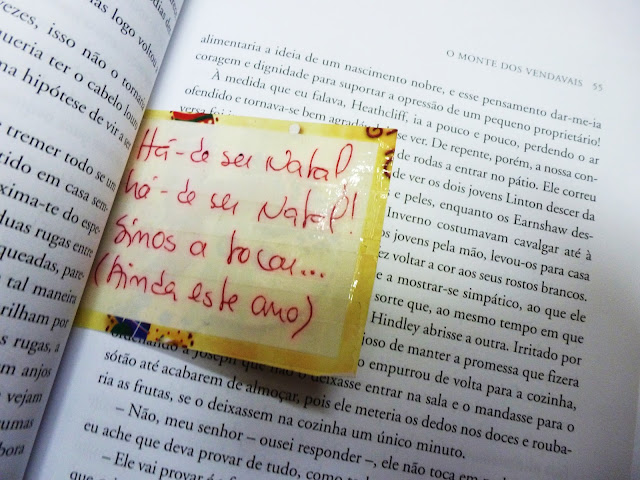 dias de
nas logo
vezes, isso não o
queria ter o cabelo
ma hipótese de vir a ser
e tremer todo se um
tido em casa sem-
xima-te do espe-
duas rugas entre
queadas, pare-
tal maneira
arilham por
s rugas, a
anjos
vejam
umas
bora
Há-de ser Natal
há-de ser Natal!
Sinos a tocar...
(Ainda este ano)
O MONTE DOS VENDAVAIS 55
alimentaria a ideia de um nascimento nobre, e esse pensamento dar-me-ia
coragem e dignidade para suportar a opressão de um pequeno proprietário!
À medida que eu falava, Heathcliff, ia a pouco e pouco, perdendo o ar
ofendido e tornava-se bem agradável de se ver. De repente, porém, a nossa con-
de rodas a entrar no pátio. Ele correu
de ver os dois jovens Linton descer da
e peles, enquanto os Earnshaw des-
Inverno costumavam cavalgar até à
os jovens pela mão, levou-os para casa
ez voltar a cor aos seus rostos brancos.
e a mostrar-se simpático, ao que ele
sorte que, ao mesmo tempo em que
Hindley abrisse a outra. Irritado por
oso de manter a promessa que fizera
empurrou de volta para a cozinha,
ordenando a Joseph que não o deixasse entrar na sala e o mandasse para o
sótão até acabarem de almoçar, pois ele meteria os dedos nos doces e rouba-
ria as frutas, se o deixassem na cozinha um único minuto.
– Não, meu senhor – ousei responder –, ele não toca em
eu ache que deva provar de tudo, como
– Ele vai provar